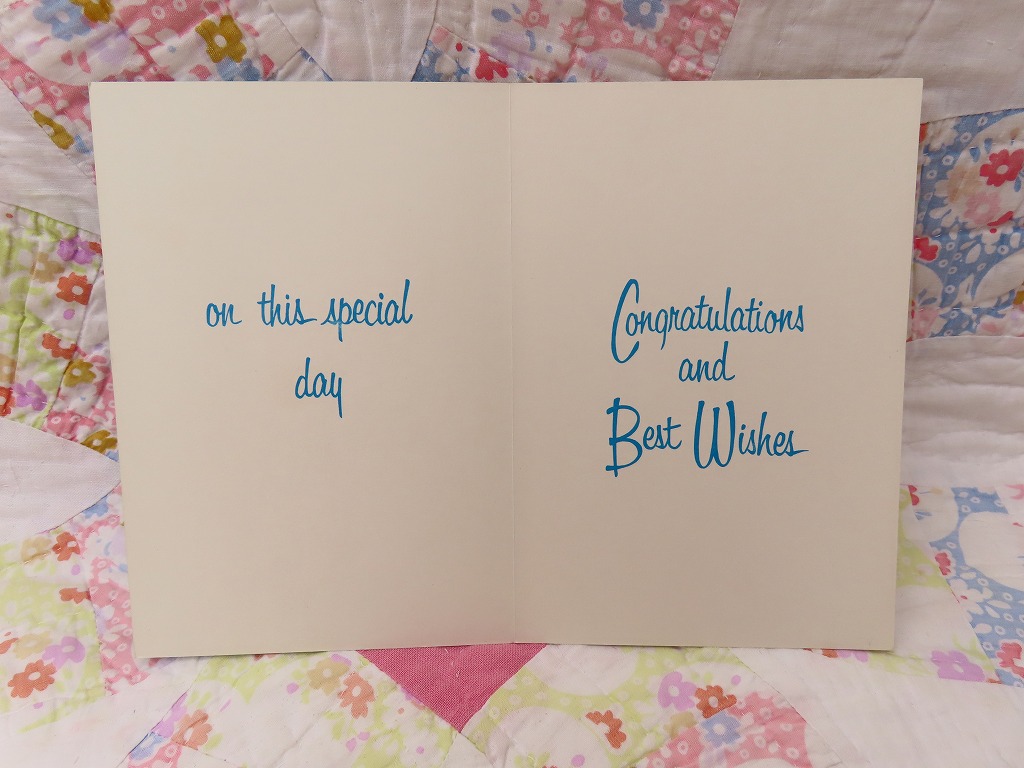 on this special
day
Congratulations
and
Best Wishes